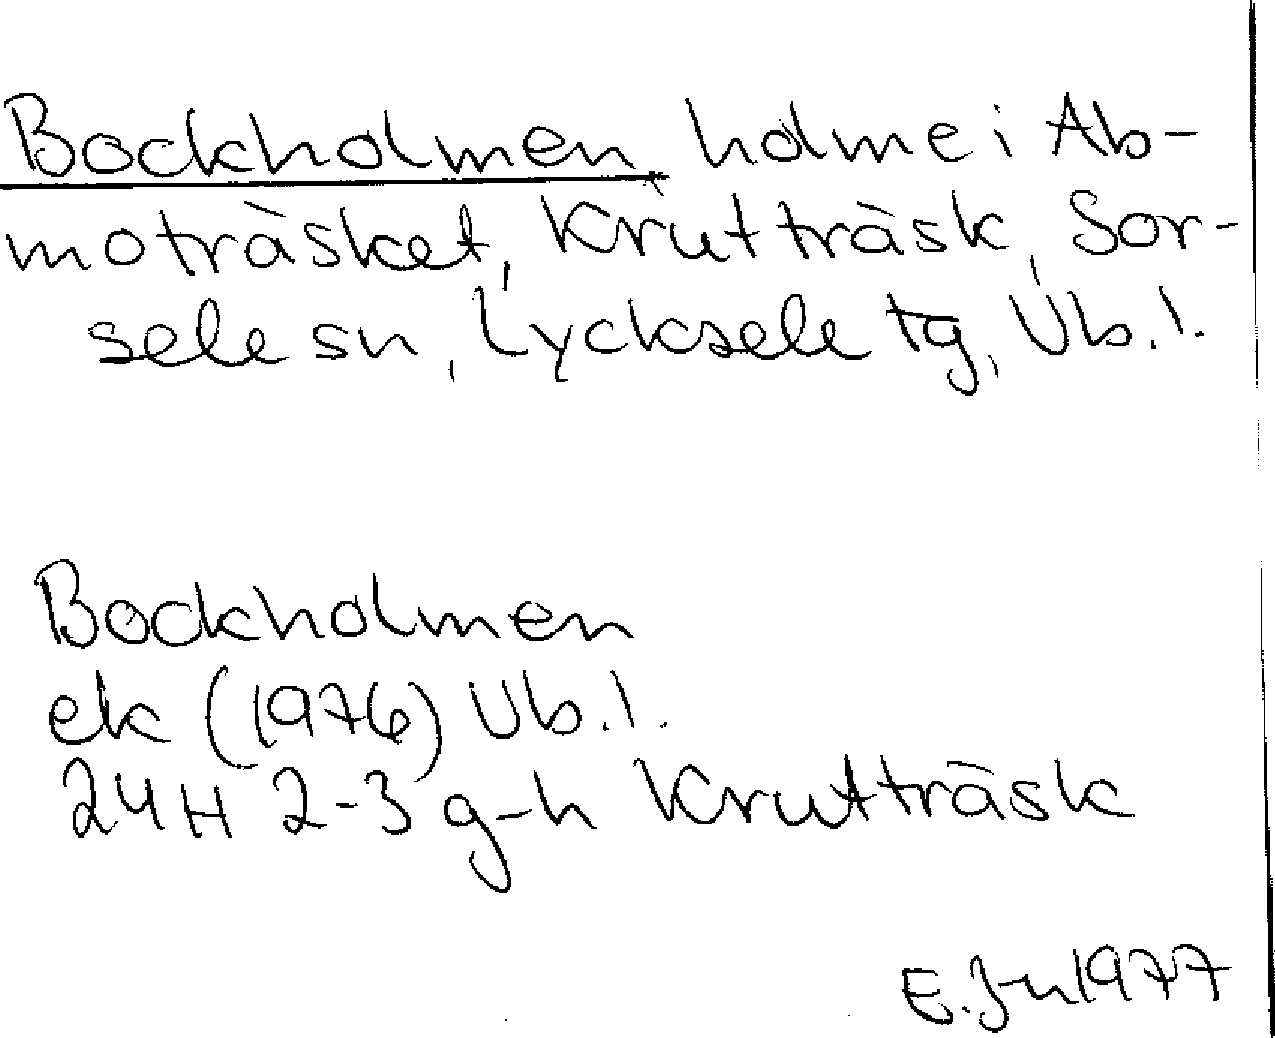 Bockholmen holme i Ab-
moträsket, Krutträsk, Sor-
sele sn, Lycksele tg, Vb. l.
Bockholmen
ek (1976) Vb. l.
24H 2-3 g-h Krutträsk
E. Jn 1977